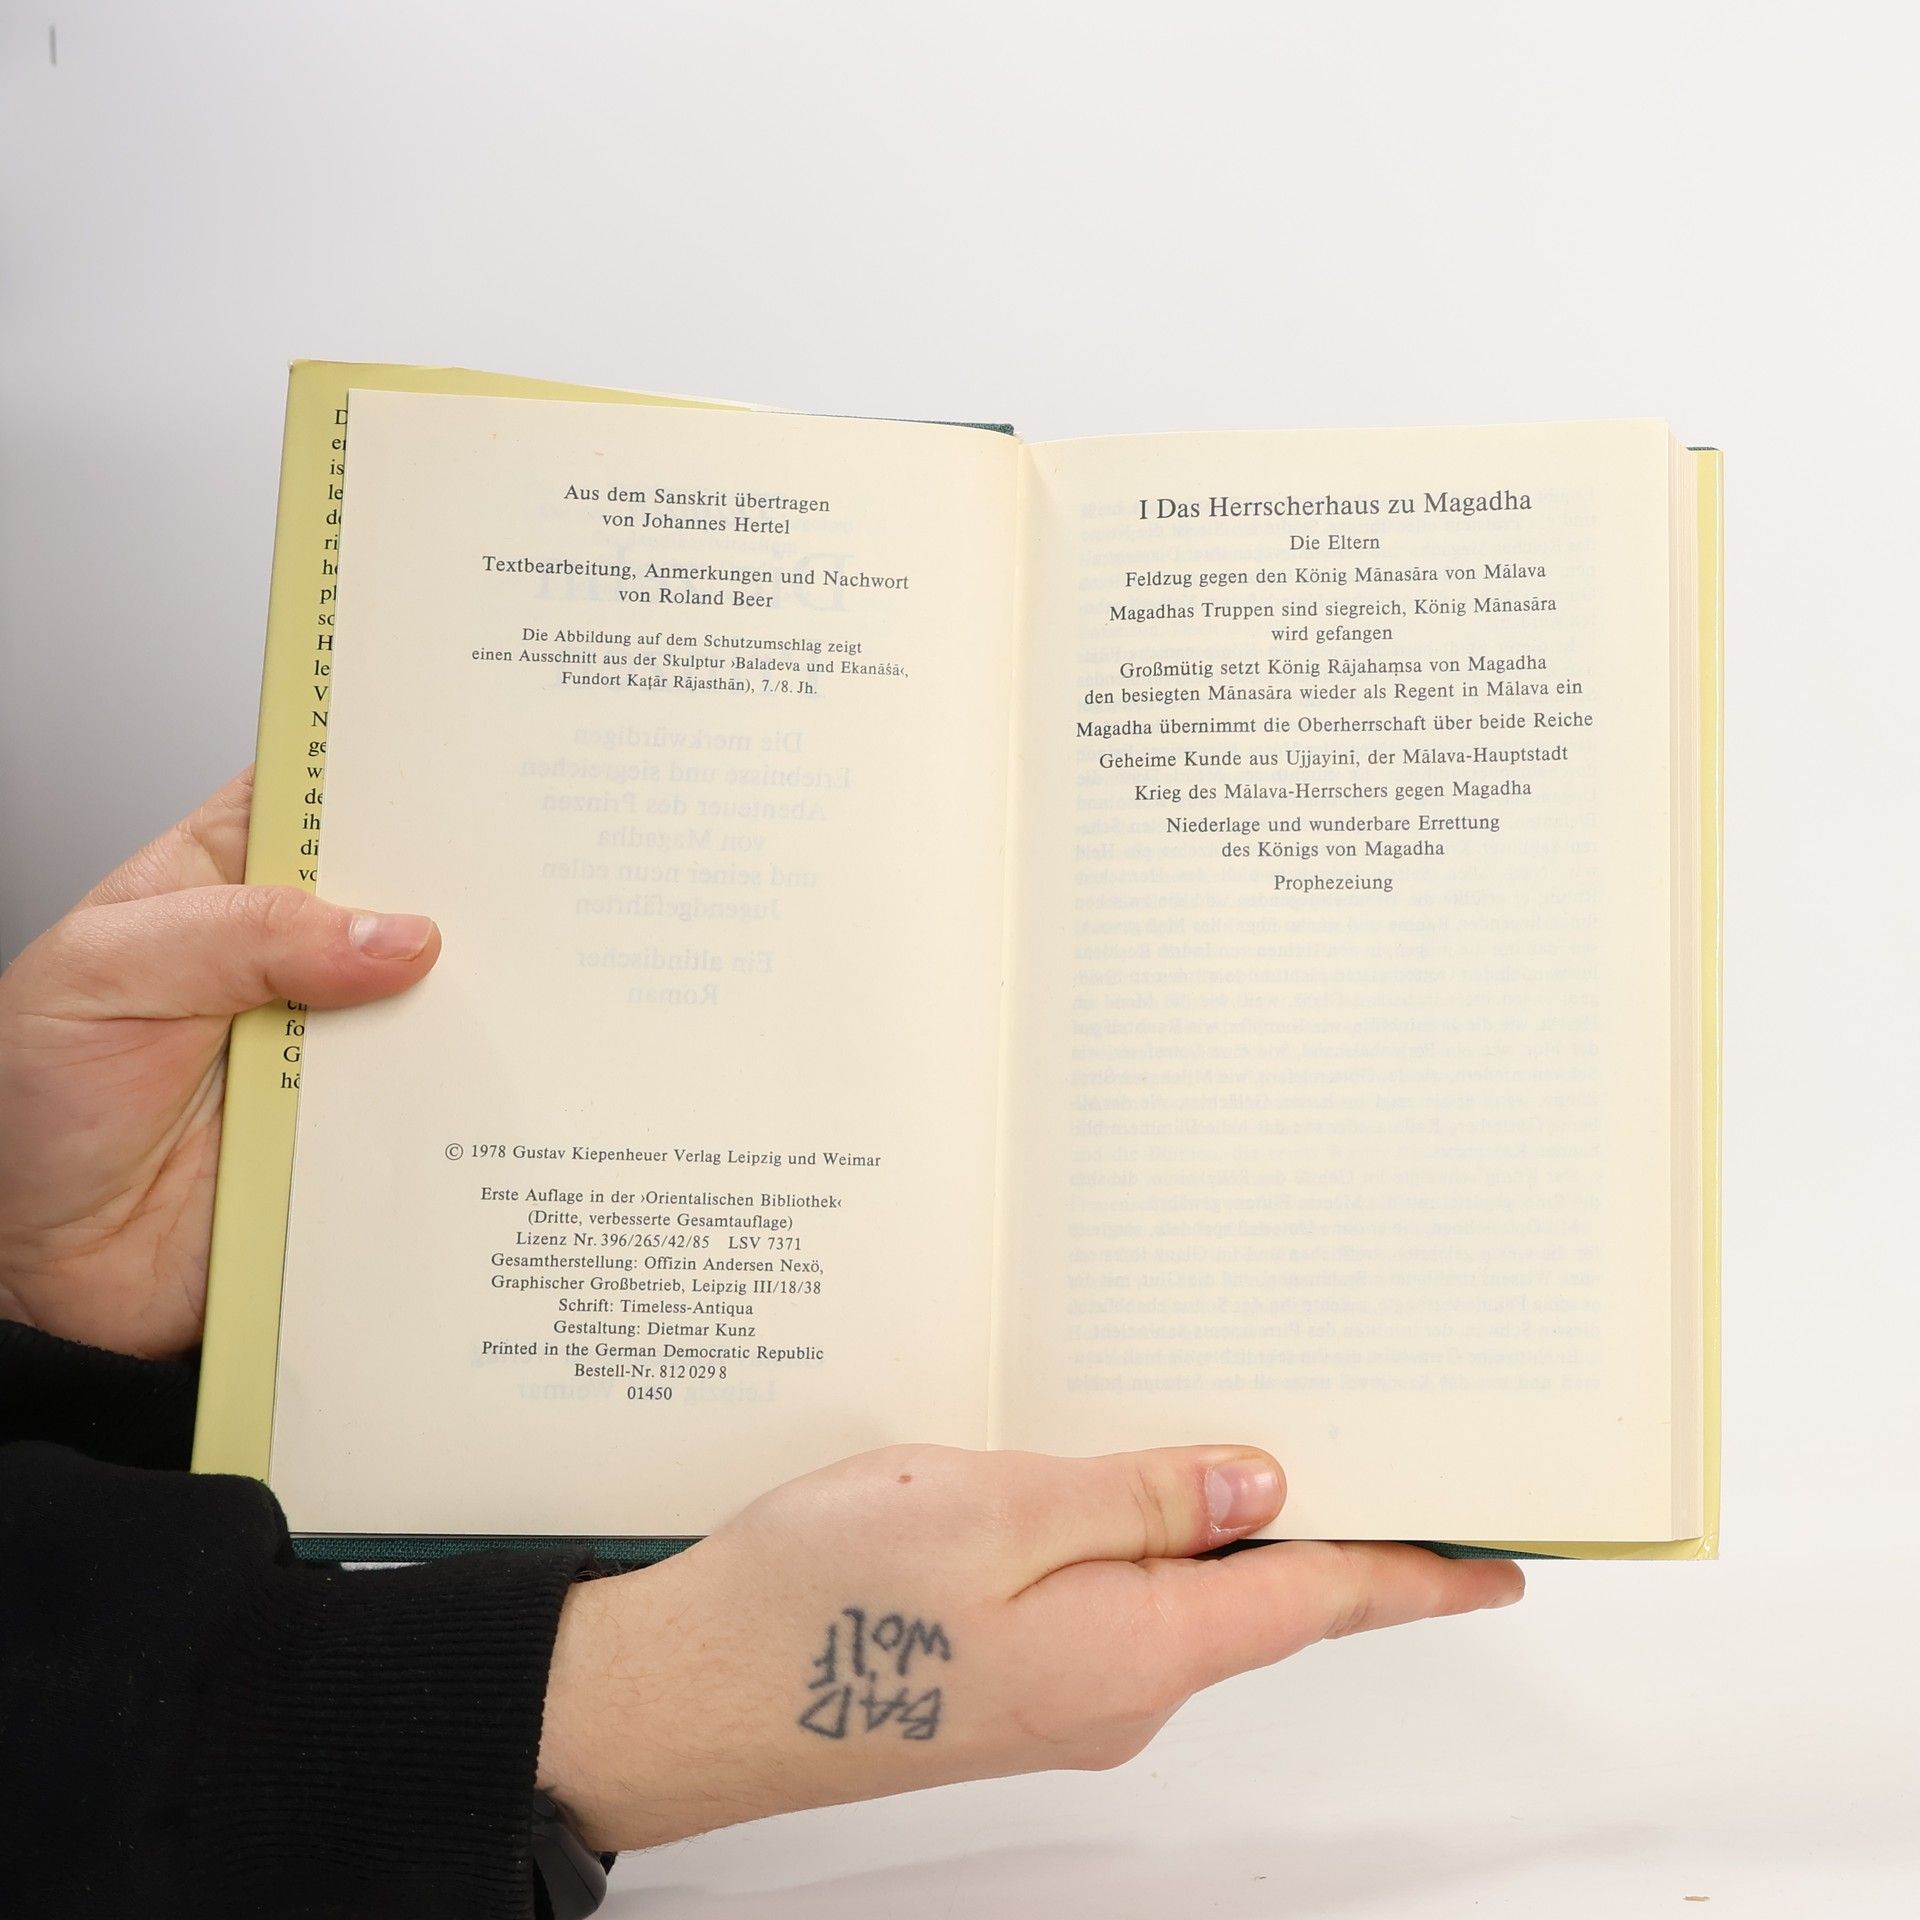 Aus dem Sanskrit übertragen
von Johannes Hertel
Textbearbeitung, Anmerkungen und Nachwort
von Roland Beer
Die Abbildung auf dem Schutzumschlag zeigt
einen Ausschnitt aus der Skulptur ›Baladeva und Ekanāśā‹,
Fundort Kaṭār Rājasthān), 7./8. Jh.
© 1978 Gustav Kiepenheuer Verlag Leipzig und Weimar
Erste Auflage in der ›Orientalischen Bibliothek‹
(Dritte, verbesserte Gesamtauflage)
Lizenz Nr. 396/265/42/85 LSV 7371
Gesamtherstellung: Offizin Andersen Nexö,
Graphischer Großbetrieb, Leipzig III/18/38
Schrift: Timeless-Antiqua
Gestaltung: Dietmar Kunz
Printed in the German Democratic Republic
Bestell-Nr. 812 029 8
01450
I Das Herrscherhaus zu Magadha
Die Eltern
Feldzug gegen den König Mānasāra von Mālava
Magadhas Truppen sind siegreich, König Mānasāra
wird gefangen
Großmütig setzt König Rājahaṃsa von Magadha
den besiegten Mānasāra wieder als Regent in Mālava ein
Magadha übernimmt die Oberherrschaft über beide Reiche
Geheime Kunde aus Ujjayinī, der Mālava-Hauptstadt
Krieg des Mālava-Herrschers gegen Magadha
Niederlage und wunderbare Errettung
des Königs von Magadha
Prophezeiung
BAD
WOLF